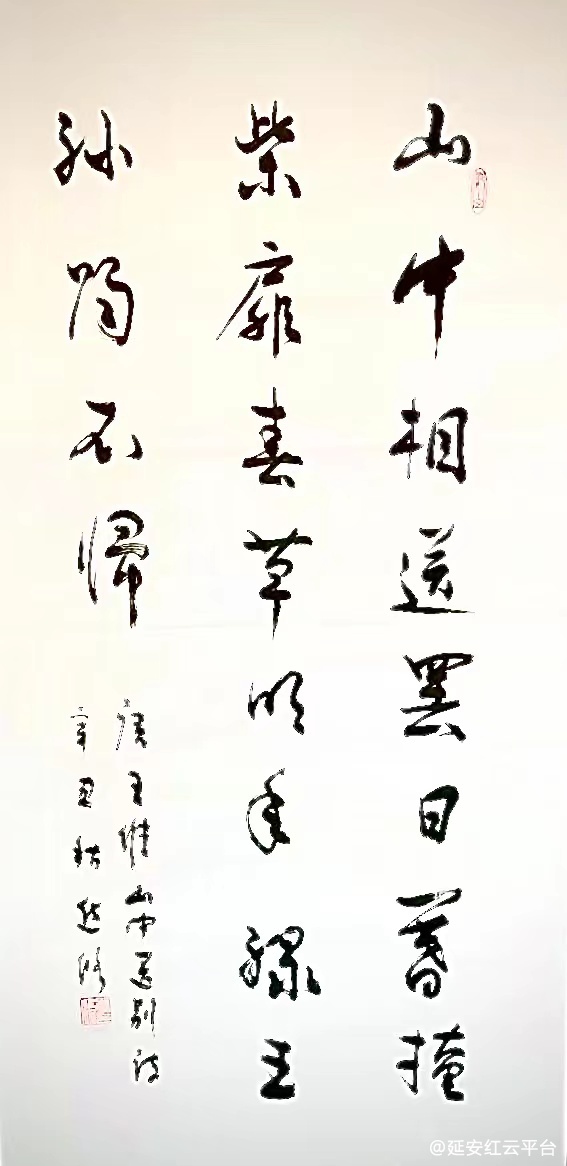 山中相送罢日暮掩
柴扉春草明年绿王
孙归不归
唐王维山中送别诗
辛丑秋
@延安红云平台